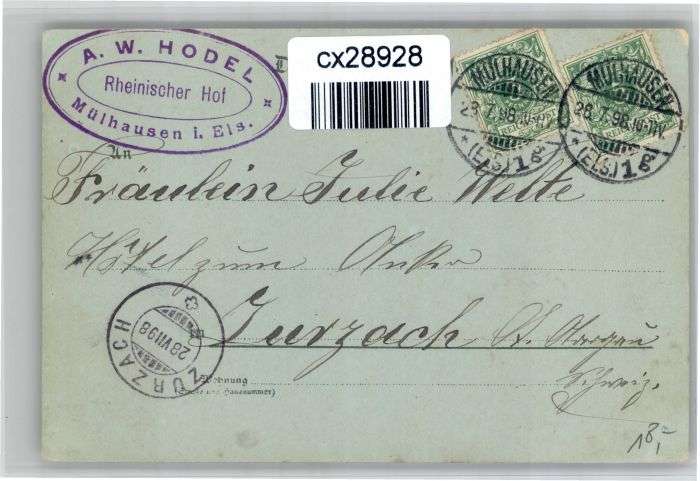 A. W. HODEL
Rheinischer Hof
Mülhausen i. Els.
cx28928
MÜLHAUSEN
28.7.98.10-11V.
*(ELS.)1g
MÜLHAUSEN
28.7.98.10-11V.
*(ELS.)1g
An
Fräulein Julie Welte
Hôtel zum Anker
Zurzach Ct. Aargau
Schweiz.
ZURZACH
28 VII 98
Wohnung
(Straße und Hausnummer)
18,-